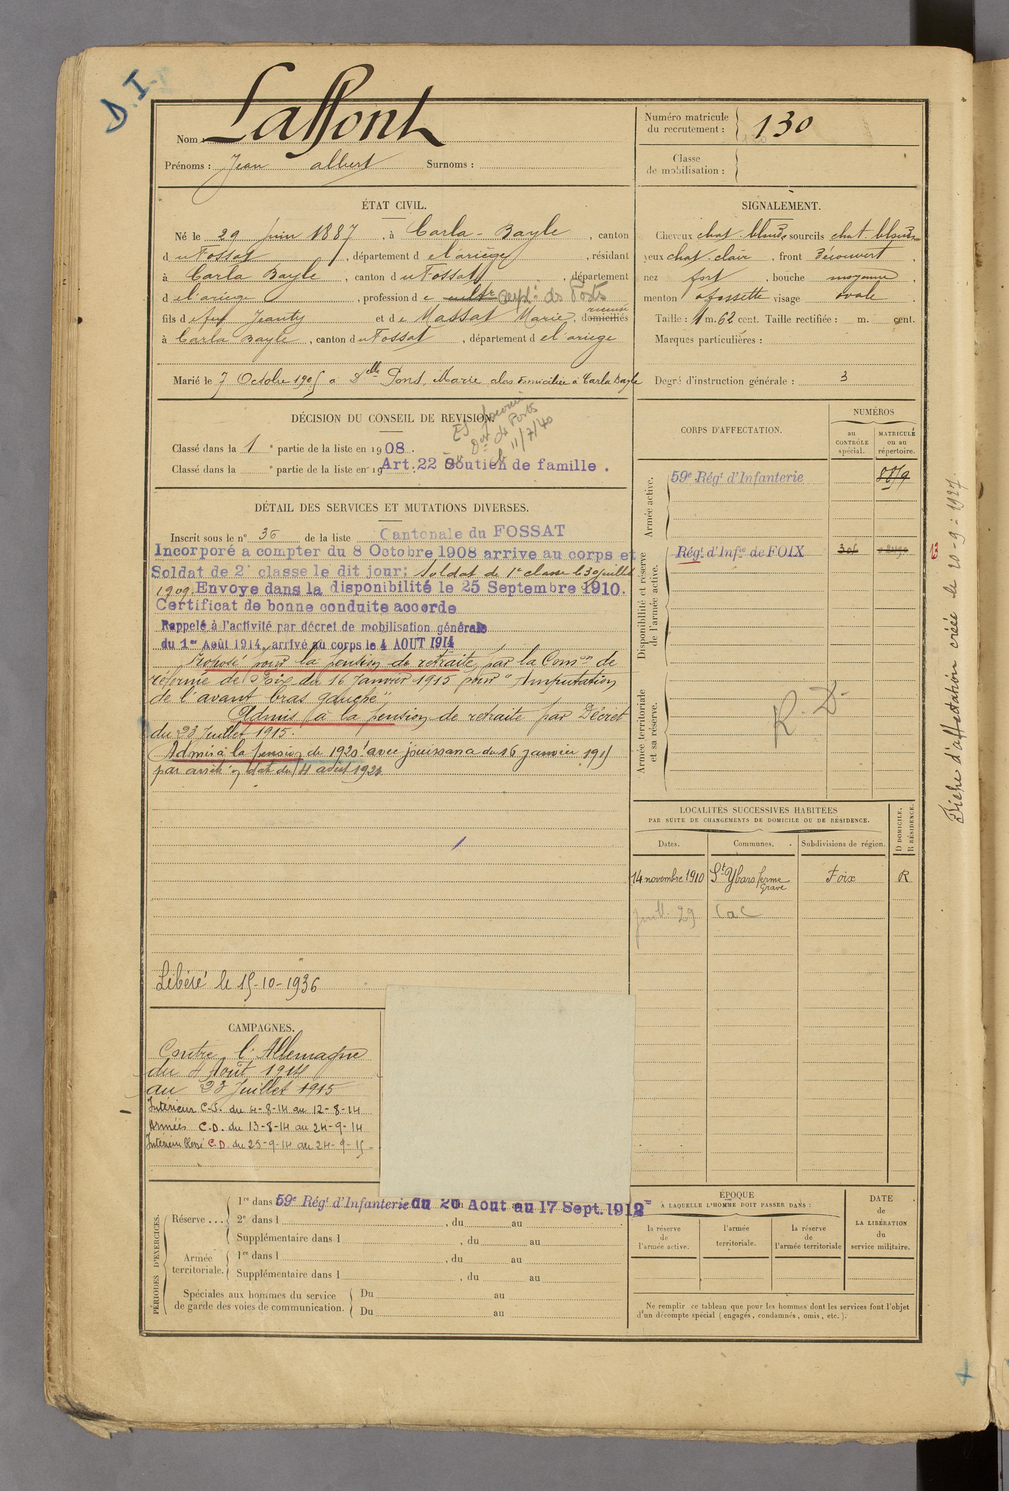 D.I.
Nom : Laffont
Prénoms : Jean albert Surnoms :
Numéro matricule
du recrutement : 130
Classe
de mobilisation :
ÉTAT CIVIL.
Né le 29 Juin 1887, à Carla-Bayle, canton
du Fossat, département de l'ariège, résidant
à Carla Bayle, canton du Fossat, département
de l'ariege, profession de cult de Ports
fils de feu Jeanty et de Massat Marie, domiciliés
à Carla Bayle, canton du Fossat, département de l'ariege
Marié le 7 Octobre 1905 a Dlle Pons, Marie domiciliée a Carla Bayle
SIGNALEMENT.
Cheveux chat. blonds sourcils chat. blonds
yeux chat. clair, front Découvert,
nez fort, bouche moyenne
menton a fossette visage ovale
Taille : 1 m. 62 cent. Taille rectifiée : m. cent.
Marques particulières :
Degré d'instruction générale : 3
DÉCISION DU CONSEIL DE REVISION.
Classé dans la 1 e partie de la liste en 1908.
Classé dans la e partie de la liste en 19 Art. 22 Soutien de famille.
de Ports
11/7/40
DÉTAIL DES SERVICES ET MUTATIONS DIVERSES.
Inscrit sous le n° 36 de la liste Cantonale du FOSSAT
Incorporé a compter du 8 Octobre 1908 arrive au corps et
Soldat de 2e classe le dit jour; Soldat de 1e classe le 30 juillet
1909. Envoye dans la disponibilité le 25 Septembre 1910.
Certificat de bonne conduite accorde
Rappelé à l'activité par décret de mobilisation générale
du 1er Août 1914, arrivé au corps le 4 AOUT 1914
Proposé pour la pension de retraite par la Comon de
réforme de Foix du 16 Janvier 1915 pour "Amputation
de l'avant bras gauche"
Admis à la pension de retraite par Décret
du 23 Juillet 1915.
Admis à la pension de 1920! avec jouissance du 16 janvier 1915
par arrêté en dat du 4 août 1923
Libéré le 15-10-1936
CORPS D'AFFECTATION.
NUMÉROS
au
CONTRÔLE
spécial.
MATRICULE
ou au
répertoire.
Armée active.
59e Régt d'Infanterie 8859
Disponibilité et réserve
de l'armée active.
Régt d'Infie de FOIX 301
Armée territoriale
et sa réserve.
R. D.
Fiche d'affectation créée le 20-9-1927
LOCALITÉS SUCCESSIVES HABITÉES
PAR SUITE DE CHANGEMENTS DE DOMICILE OU DE RÉSIDENCE.
Dates. Communes. Subdivisions de région.
D DOMICILE.
R RÉSIDENCE.
14 novembre 1910 St Ybars ferme Grave Foix R
Juill. 29 CaC
CAMPAGNES.
Contre l'Allemagne
du 4 Août 1914
au 23 Juillet 1915
Intérieur C.S. du 4-8-14 au 12-8-14
Armées C.D. du 13-8-14 au 24-9-14
Intérieur Blessé C.D. du 25-9-14 au 24-9-15
PÉRIODES D'EXERCICES.
Réserve ...
1re dans 59e Régt d'Infanterie du 26 Aout au 17 Sept. 1912
2e dans l , du au
Supplémentaire dans l , du au
Armée
territoriale.
1re dans l , du au
Supplémentaire dans l , du au
Spéciales aux hommes du service
de garde des voies de communication.
Du au
Du au
ÉPOQUE
À LAQUELLE L'HOMME DOIT PASSER DANS :
la réserve
de
l'armée active.
l'armée
territoriale.
la réserve
de
l'armée territoriale
DATE
de
LA LIBÉRATION
du
service militaire.
Ne remplir ce tableau que pour les hommes dont les services font l'objet
d'un décompte spécial (engagés, condamnés, omis, etc.).